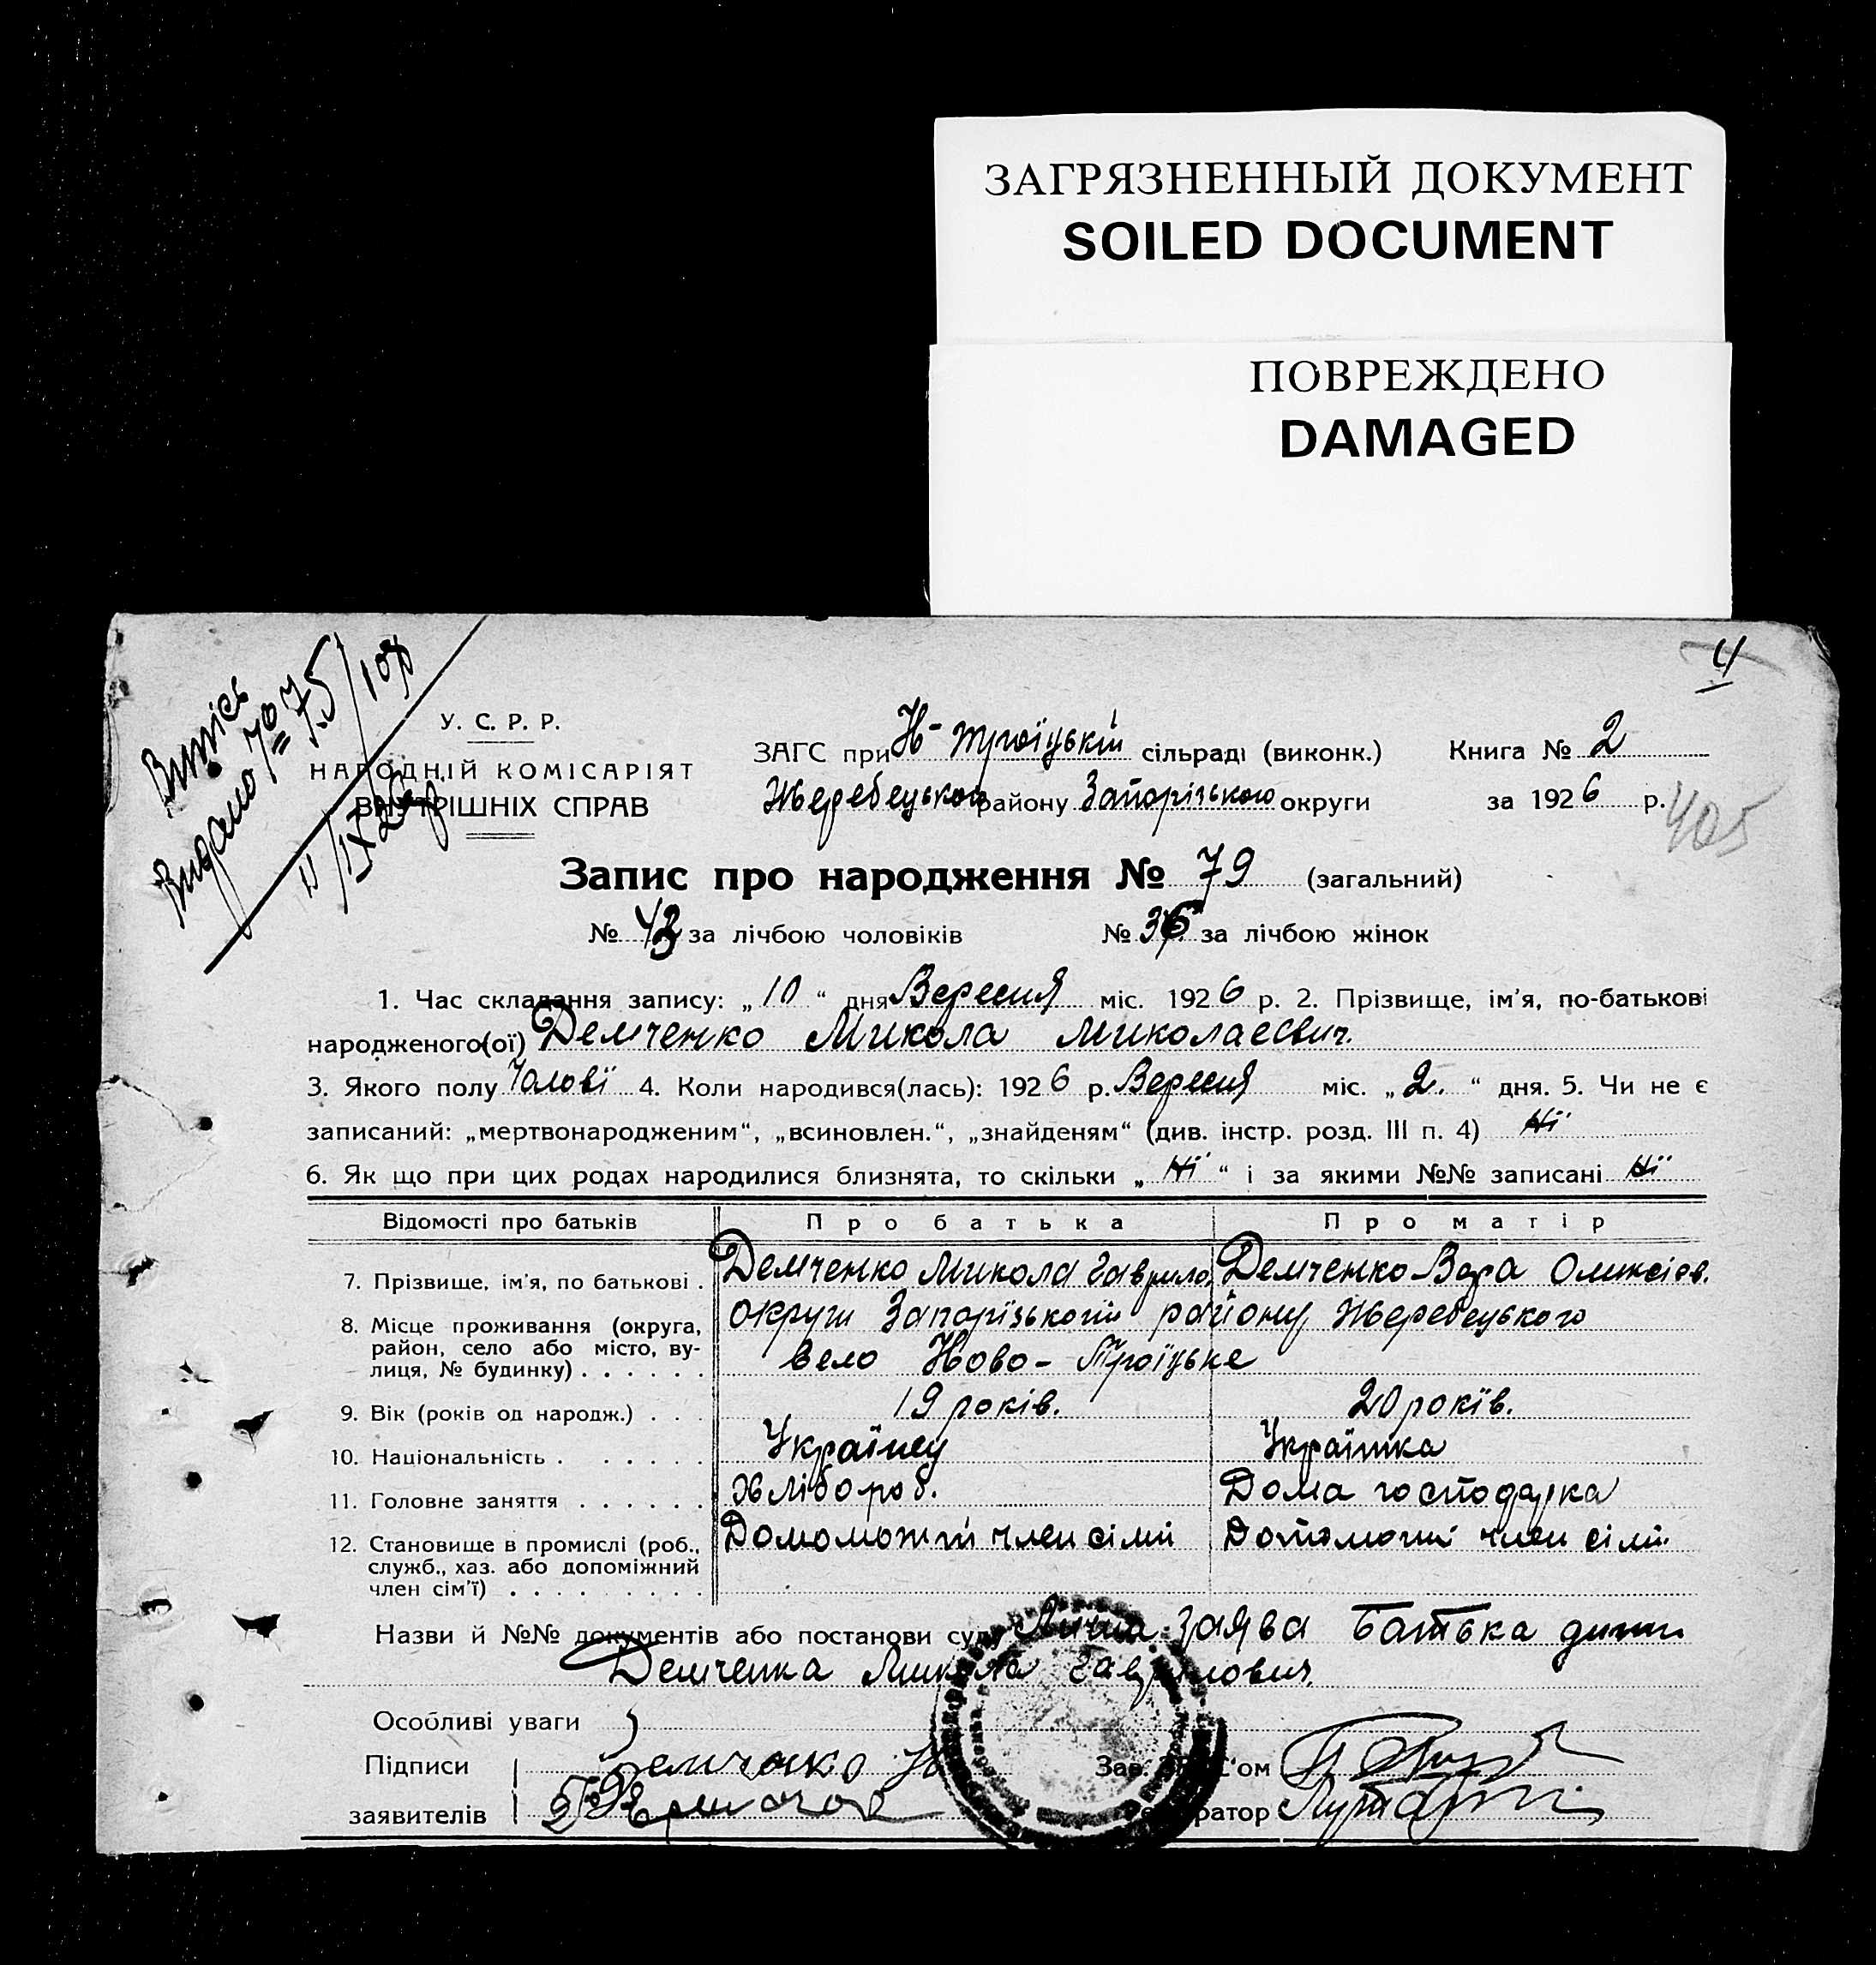 ЗАГРЯЗНЕННЫЙ ДОКУМЕНТ
SOILED DOCUMENT
ПОВРЕЖДЕНО
DAMAGED
4
Видано
У. С. Р. Р.
НАРОДНІЙ КОМІСАРІЯТ
ВНУТРІШНІХ СПРАВ
ЗАГС при Н-Троїцькій сільраді (виконк.) Книга № 2
Жеребецького району Запорізького округи за 1926 р.
405
Запис про народження № 79 (загальний)
№ 43 за лічбою чоловіків № 36 за лічбою жінок
1. Час складання запису: „10“ дня Вересня міс. 1926 р. 2. Прізвище, ім'я, по-батькові
народженого(ої) Демченко Микола Миколаєвич.
3. Якого полу Чолові 4. Коли народився(лась): 1926 р. Вересня міс. „2.“ дня. 5. Чи не є
записаний: „мертвонародженим“, „всиновлен.“, „знайденям“ (див. інстр. розд. III п. 4) Ні
6. Як що при цих родах народилися близнята, то скільки „Ні“ і за якими №№ записані Ні
Відомості про батьків Про батька Про матір
7. Прізвище, ім'я, по батькові . Демченко Микола Гаврило. Демченко Вера Олексієв.
8. Місце проживання (округа, округи Запорізького району Жеребецького
район, село або місто, ву-
лиця, № будинку) . . . . . . село Ново-Троїцьке
9. Вік (років од народж.) . . . 19 років. 20 років.
10. Національність . . . . . . Українец Українка
11. Головне заняття . . . . . . Хлібороб. Дома господарка
12. Становище в промислі (роб., член сімї член сімї
служб., хаз. або допоміжний
член сім'ї) . . . . . . . . .
Назви й №№ документів або постанови суду Лична заява Батька
Демченка Микола Гаврилович.
Особливі уваги
Підписи Демченко Зав. ЗАГС'ом
заявителів Реєстратор